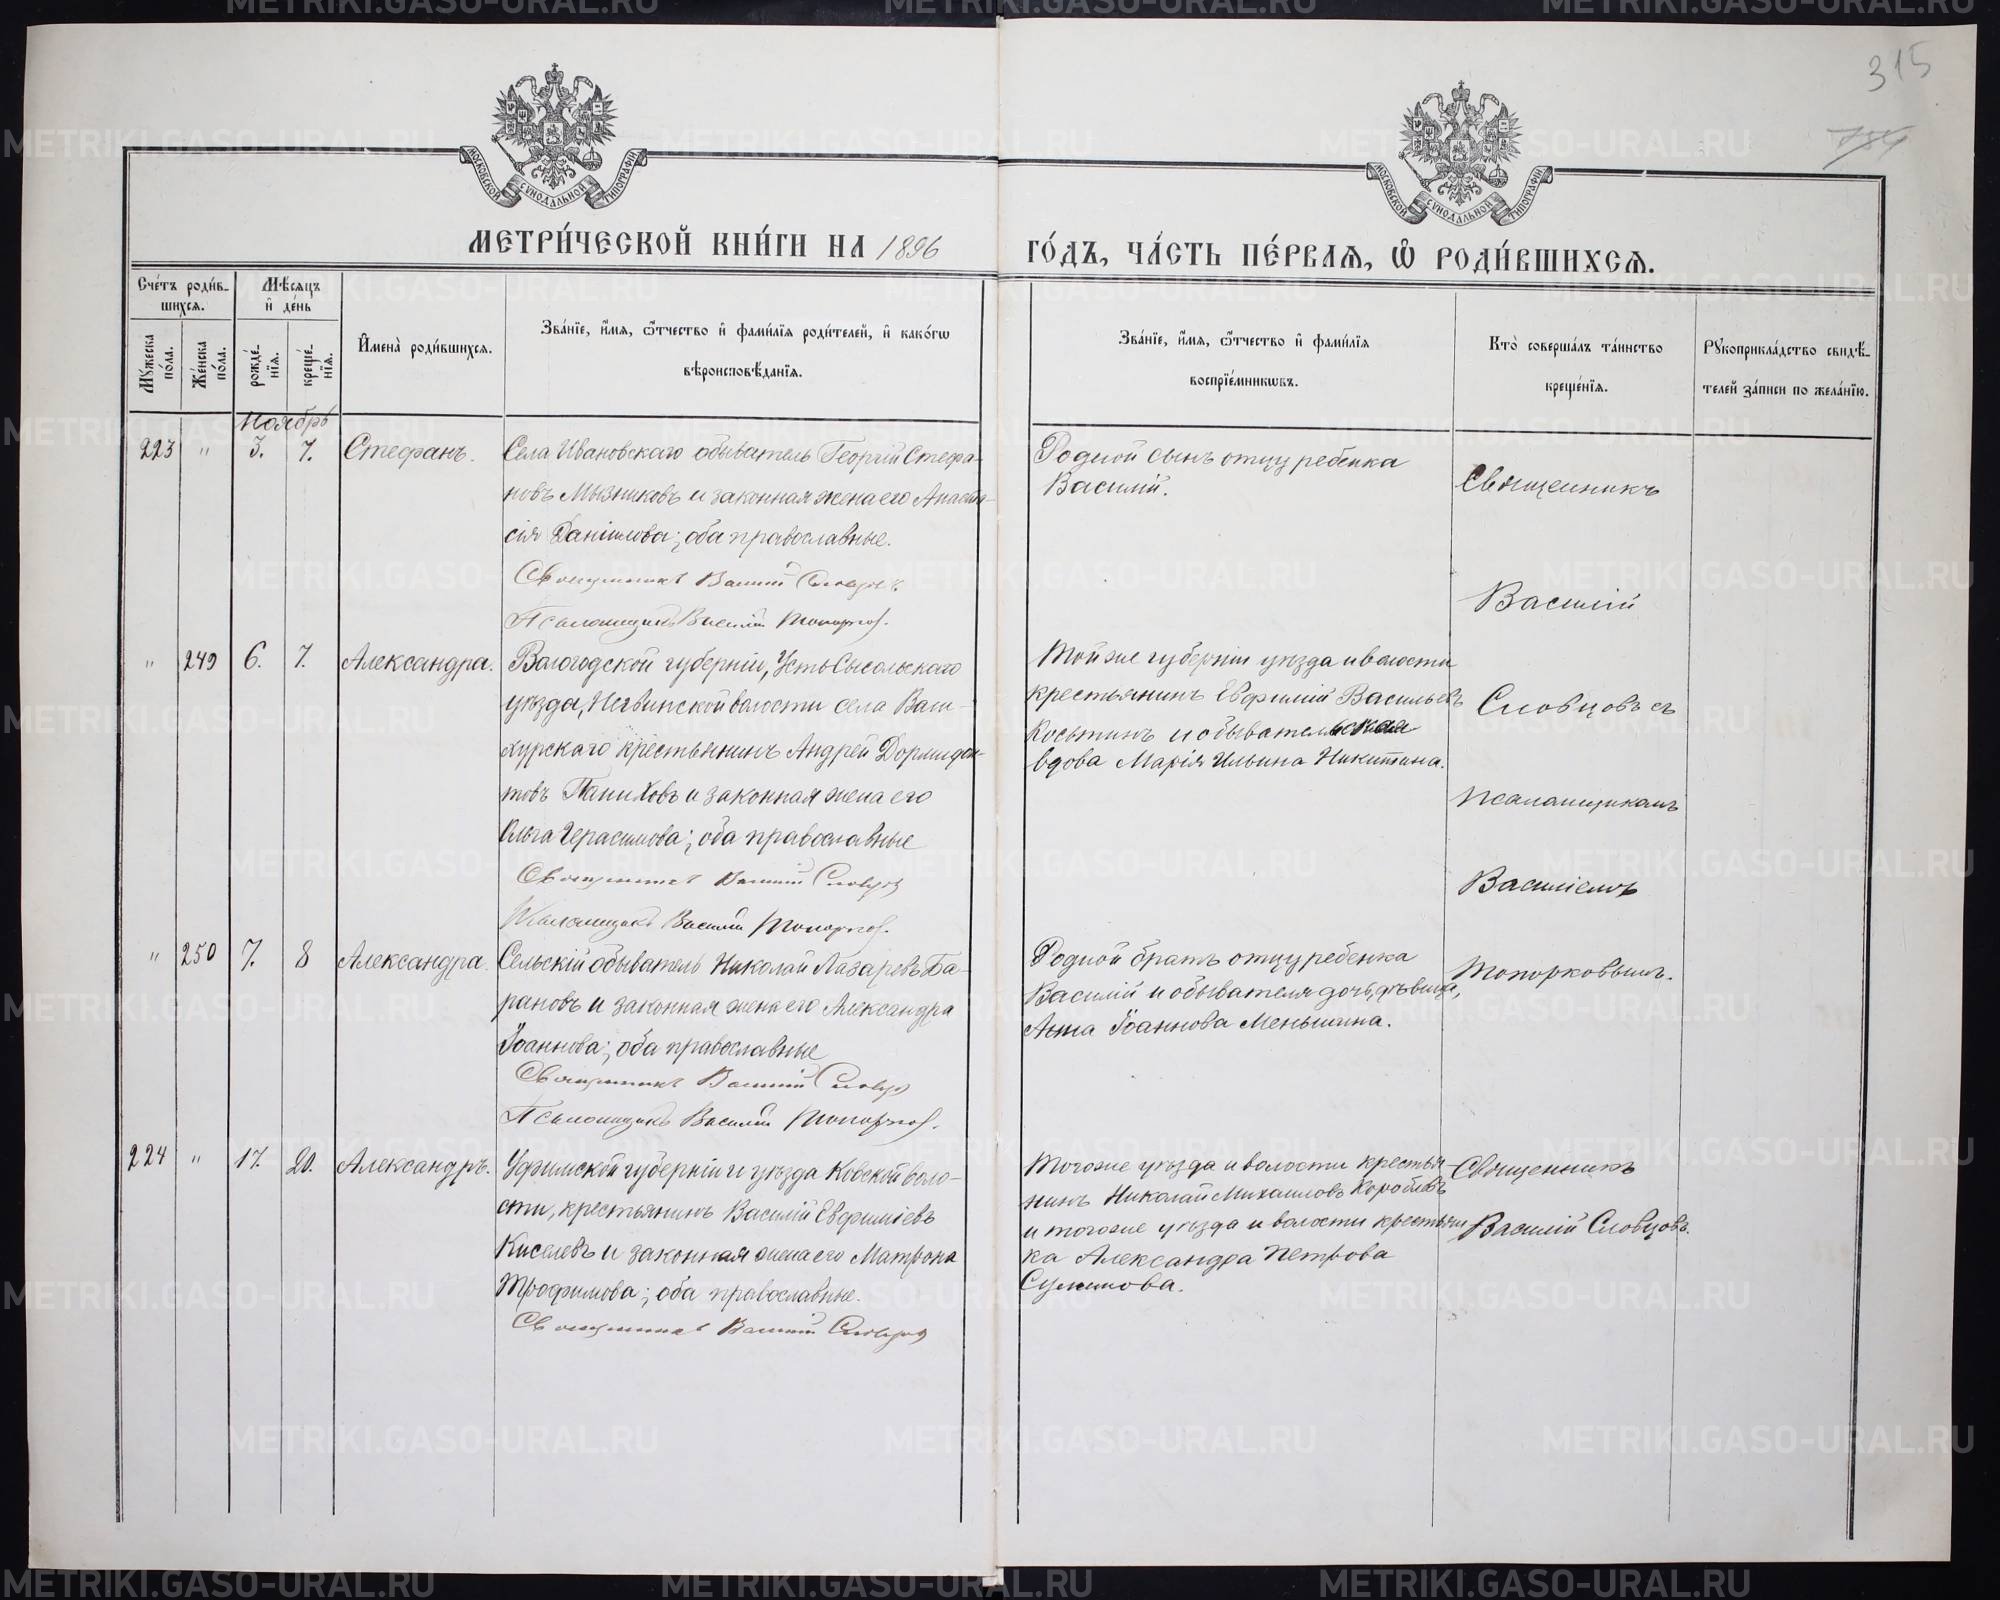 315
784
МОСКОВСКОЙ СѴНОДАЛЬНОЙ ТИПОГРАФІИ
МОСКОВСКОЙ СѴНОДАЛЬНОЙ ТИПОГРАФІИ
МЕТРИ́ЧЕСКОЙ КНИ́ГИ НА 1896
ГО́ДЪ, ЧА́СТЬ ПЕ́РВАѦ, Ѽ РОДИ́ВШИХСѦ.
Сче́тъ роди́в-
шихсѧ.
Мѣ́сѧцъ
и҆ де́нь
Мꙋ́жеска по́ла.
Же́нска по́ла.
рожде́-
нїѧ.
креще́-
нїѧ.
И҆мена̀ роди́вшихсѧ.
Зва́нїе, и҆́мѧ, ѻ҆́тчество и҆ фами́лїѧ роди́телей, и҆ како́гѡ
вѣроисповѣ́данїѧ.
Зва́нїе, и҆́мѧ, ѻ҆́тчество и҆ фами́лїѧ
воспрїе́мникѡвъ.
Кто̀ соверша́лъ та́инство
креще́нїѧ.
Рꙋкоприкла́дство свидѣ́-
телей за́писи по жела́нїю.
Ноябрь
223 " 3. 7. Стефанъ.
Села Ивановскаго обыватель Георгій Стефа-
новъ Мызниковъ и законная жена его Анаста-
сія Даніилова; оба православные.
Священникъ Василій Словцовъ.
Псаломщикъ Василій Топорков.
Родной сынъ отцу ребенка
Василій.
Священникъ
Василій
Словцовъ съ
Псаломщикомъ
Василіемъ
Топорковымъ.
" 249 6. 7. Александра.
Вологодской губерніи, УстьСысольскаго
уѣзда, волости села
крестьянинъ Андрей Дормидон-
товъ и законная жена его
Ольга Герасимова; оба православные
Священникъ Василій Словцов
Псаломщикъ Василій Топорков.
Той же губерніи уѣзда и волости
крестьянинъ Евфимій Васильевъ
Косьминъ и обывательская
вдова Марія Ильина Никитина.
" 250 7. 8 Александра.
Сельскій обыватель Николай Лазаревъ Ба-
рановъ и законная жена его Александра
Іоаннова; оба православные
Священникъ Василій Словцов
Псаломщикъ Василій Топорков.
Родной братъ отцу ребенка
Василій и обывателя дочь, дѣвица,
Анна Іоаннова Меньшина.
224 " 17. 20. Александръ.
Уфимской губерніи и уѣзда воло-
сти, крестьянинъ Василій Евфиміевъ
Киселевъ и законная жена его Матрона
Трофимова; оба православные.
Священникъ Василій Словцов
Того же уѣзда и волости крестья-
нинъ Николай Михаиловъ Коробевъ
и того же уѣзда и волости крестьян
ка Александра Петрова
Сулимова.
Священникъ
Василій Словцовъ.
METRIKI.GASO-URAL.RU